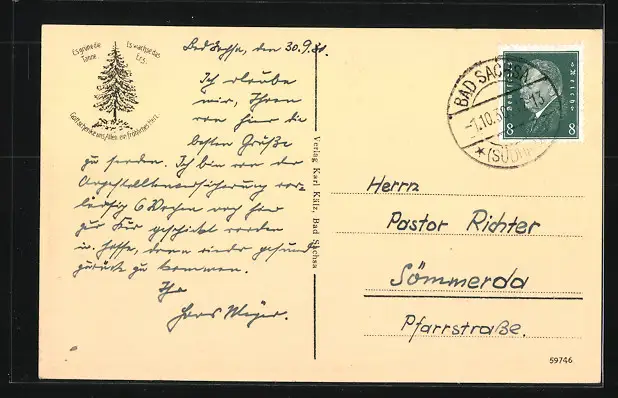 Es grüne die
Tanne
Es wachse das
Erz.
Gott schenke uns Allen ein fröhliches Herz.
Bad Sachsa, den 30.9.30.
Ich erlaube
mir, Ihnen
von hier die
besten Grüße
zu senden. Ich bin von der
Angestelltenversicherung vor-
läufig 6 Wochen nach hier
zur Kur geschickt worden
u. hoffe, dann wieder gesund
zurück zu kommen.
Ihr
Hans Meyer.
Verlag Karl Kälz, Bad Sachsa
BAD SACHSA
-1.10.30
-13
(SÜDH
Deutsches Reich
8 8
Herrn
Pastor Richter
Sömmerda
Pfarrstraße.
59746